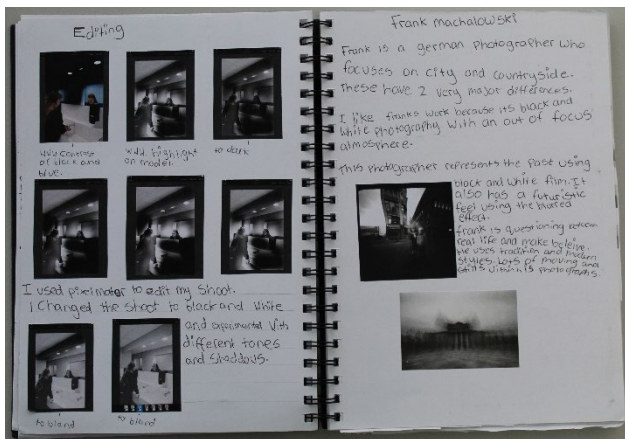 Editing
contrast
of dark and
blue.
highlight
on model.
to dark
I used pixelmator to edit my shoot.
I changed the shoot to black and white
and experimented with
different tones
and shaddows.
to bland
to bland
Frank machalowski
Frank is a german photographer who
focuses on city and countryside.
These have 2 very major differences.
I like franks work because its black and
white photography with an out of focus
atmosphere.
This photographer represents the past using
black and white film. It
also has a futuristic
feel using the blured
effect.
frank is questioning between
real life and make beleive.
He uses tradition and modern
styles. Lots of moving and
stills within is photographs.